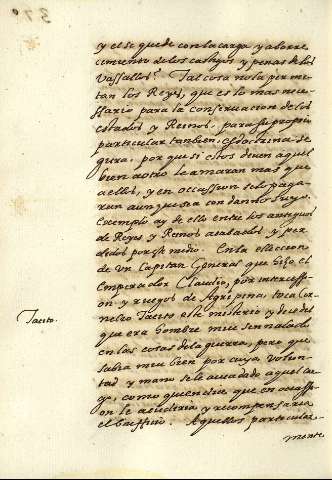 y el se quede con la carga y aborre-
cimiento de los castigos y penas de los
Vassallos. Tal cosa no la permi-
tan los Reyes, que es lo mas nece-
ssario para la conseruacion de los
estados y Reinos, para su propio
particular tambien, es doctrina se-
gura, por que si estos deuen aquel
bien a otro le amaran mas que
a ellos, y en occassion se lo paga-
ran aunque sea con danno suyo.
Exemplo ay de ello entre los antiguos
de Reyes y Reinos acabados y per-
didos por este medio. En la eleccion
de vn Capitan General que hizo el
emperador Claudio, por intercessi-
on y ruegos de Agripina, toca Cor-
nelio Tacito este misterio y dize del
Tacito.
que era hombre mui sennalado
en las cosas de la guerra, pero que
sabia mui bien por cuya volun-
tad y mano se le auia dado aquel car-
go, como quien dice que en occassi-
on le acudiria y recompensaria
el beneficio. Aquellos particular-
mente